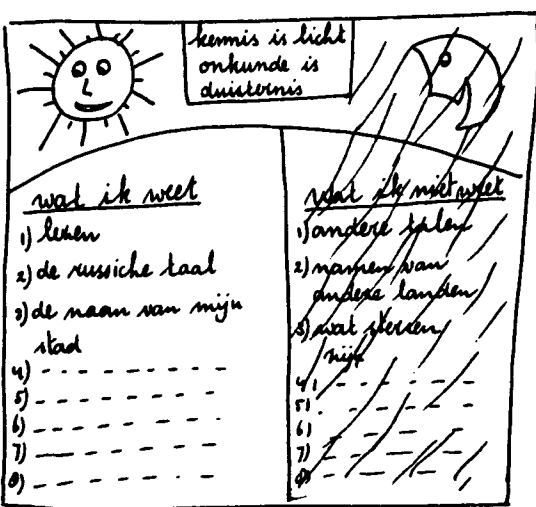 kennis is licht
onkunde is
duisternis
wat ik weet
1) lezen
2) de russiche taal
3) de naam van mijn
stad
4)
5)
6)
7)
8)
wat ik niet weet
1) andere talen
2) namen van
andere landen
3) wat sterren
zijn
4)
5)
6)
7)
8)